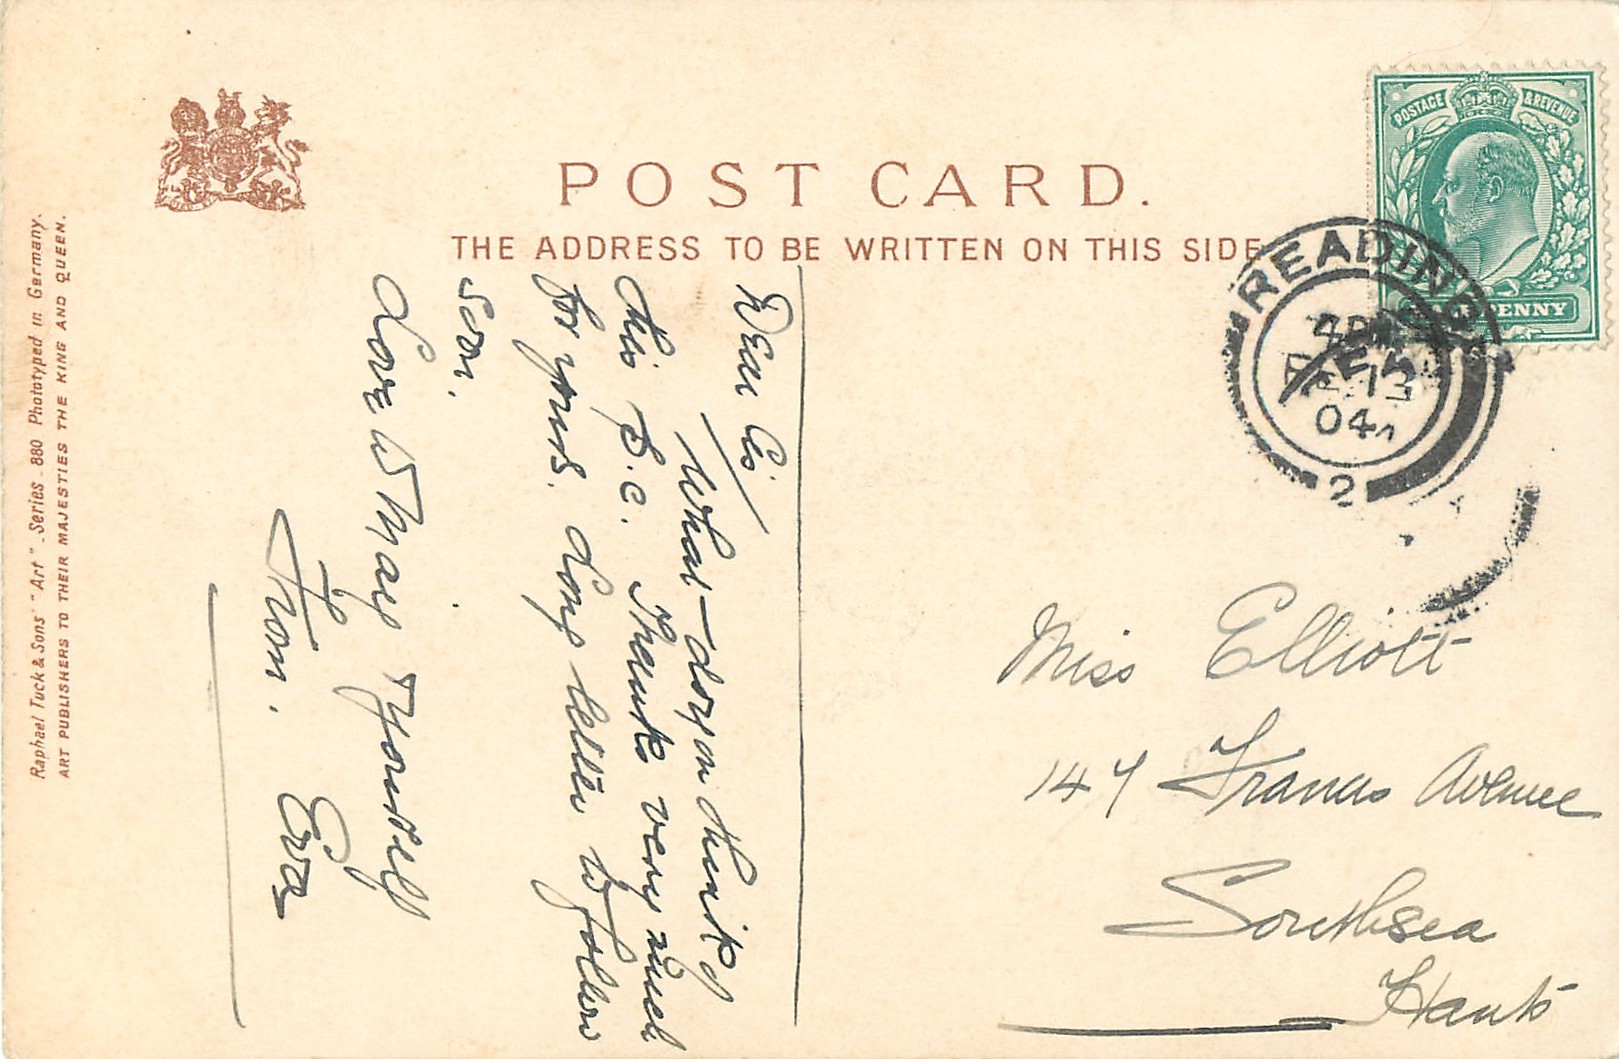 POST CARD.
THE ADDRESS TO BE WRITTEN ON THIS SIDE
POSTAGE & REVENUE
PENNY
READING
4 PM
13
04
2
Raphael Tuck & Sons' "Art" Series 880 Phototyped in Germany.
ART PUBLISHERS TO THEIR MAJESTIES THE KING AND QUEEN.
Dear Cis
What do you think of
this P.C. Thanks very much
for yours. Long letter to follow
soon.
Love to May & Yourself
From. Eva
Miss Elliott
147 Francis Avenue
Southsea
Hants